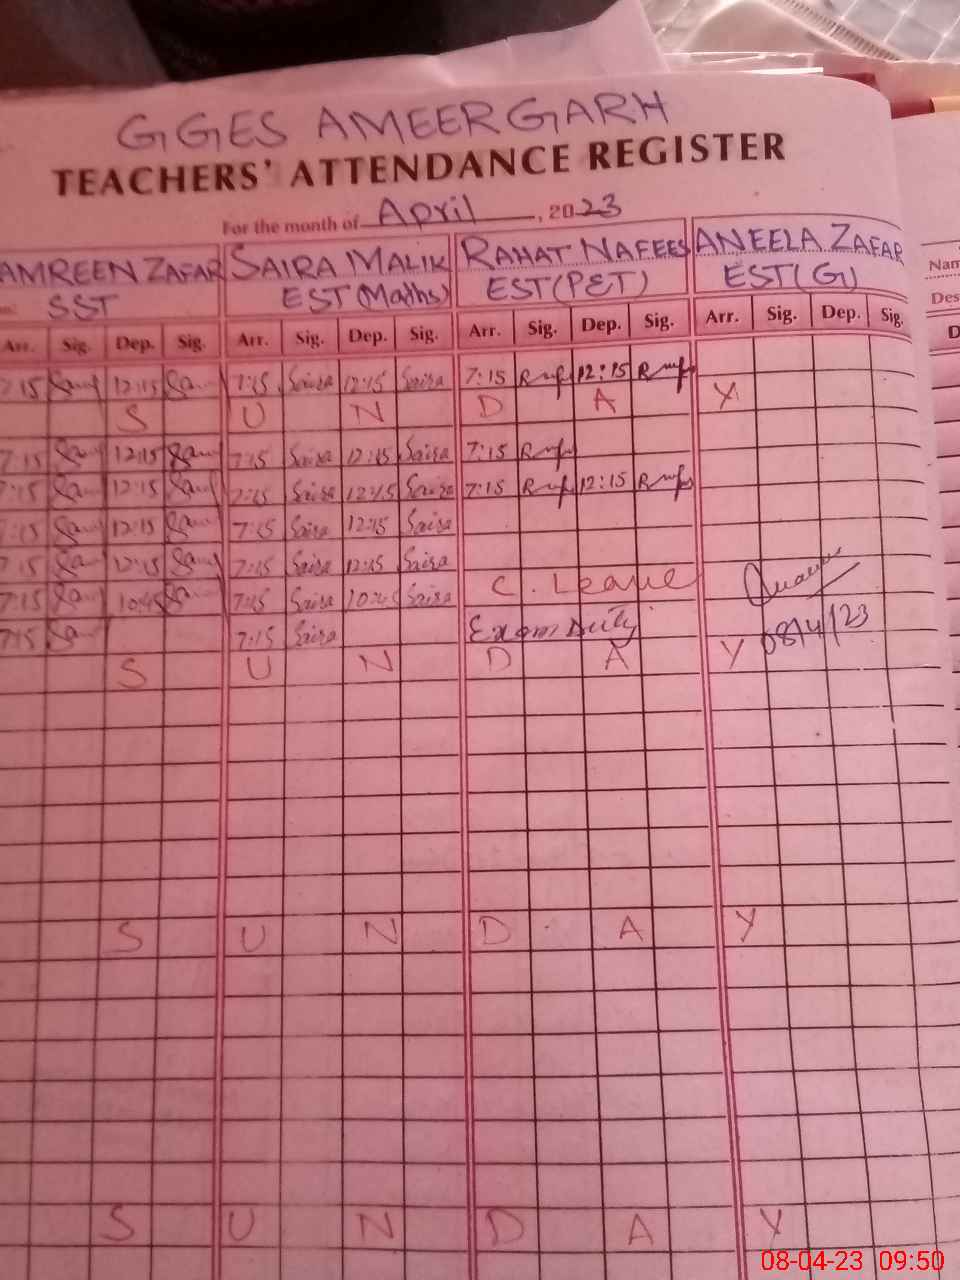 GGES AMEER GARH
TEACHERS' ATTENDANCE REGISTER
For the month of April, 2023
AMREEN ZAFAR SAIRA MALIK RAHAT NAFEES ANEELA ZAFAR Nam
SST EST (Maths) EST (PET) EST (G) Des
Arr. Sig. Dep. Sig. Arr. Sig. Dep. Sig. Arr. Sig. Dep. Sig. Arr. Sig. Dep. Sig. D
7:15 12:15 7:15 Saira 12:15 Saira 7:15 12:15
S U N D A Y
7:15 12:15 7:15 Saira 12:15 Saira 7:15
7:15 12:15 7:15 Saira 12:15 Saira 7:15 12:15
7:15 12:15 7:15 Saira 12:15 Saira
7:15 12:15 7:15 Saira 12:15 Saira
7:15 10:45 7:15 Saira 10:45 Saira C. Leave
7:15 7:15 Saira Exam Duty 08/4/23
S U N D A Y
S U N D A Y
S U N D A Y
08-04-23 09:50